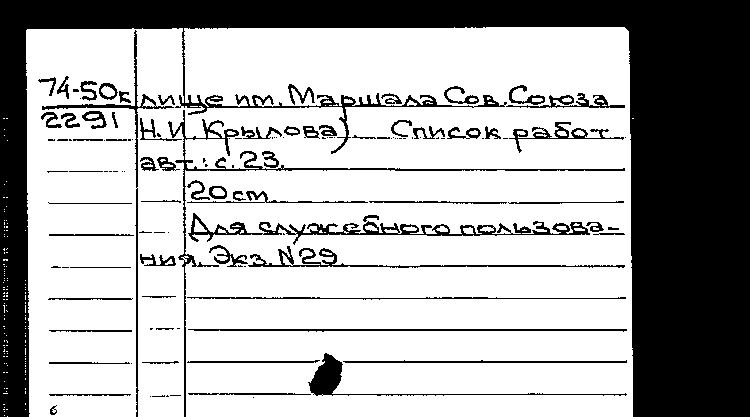 74-50к лище им. Маршала Сов. Союза
2291 Н. И. Крылова). Список работ
авт.: с. 23.
20 см.
Для служебного пользова-
ния. Экз. N 29.
6